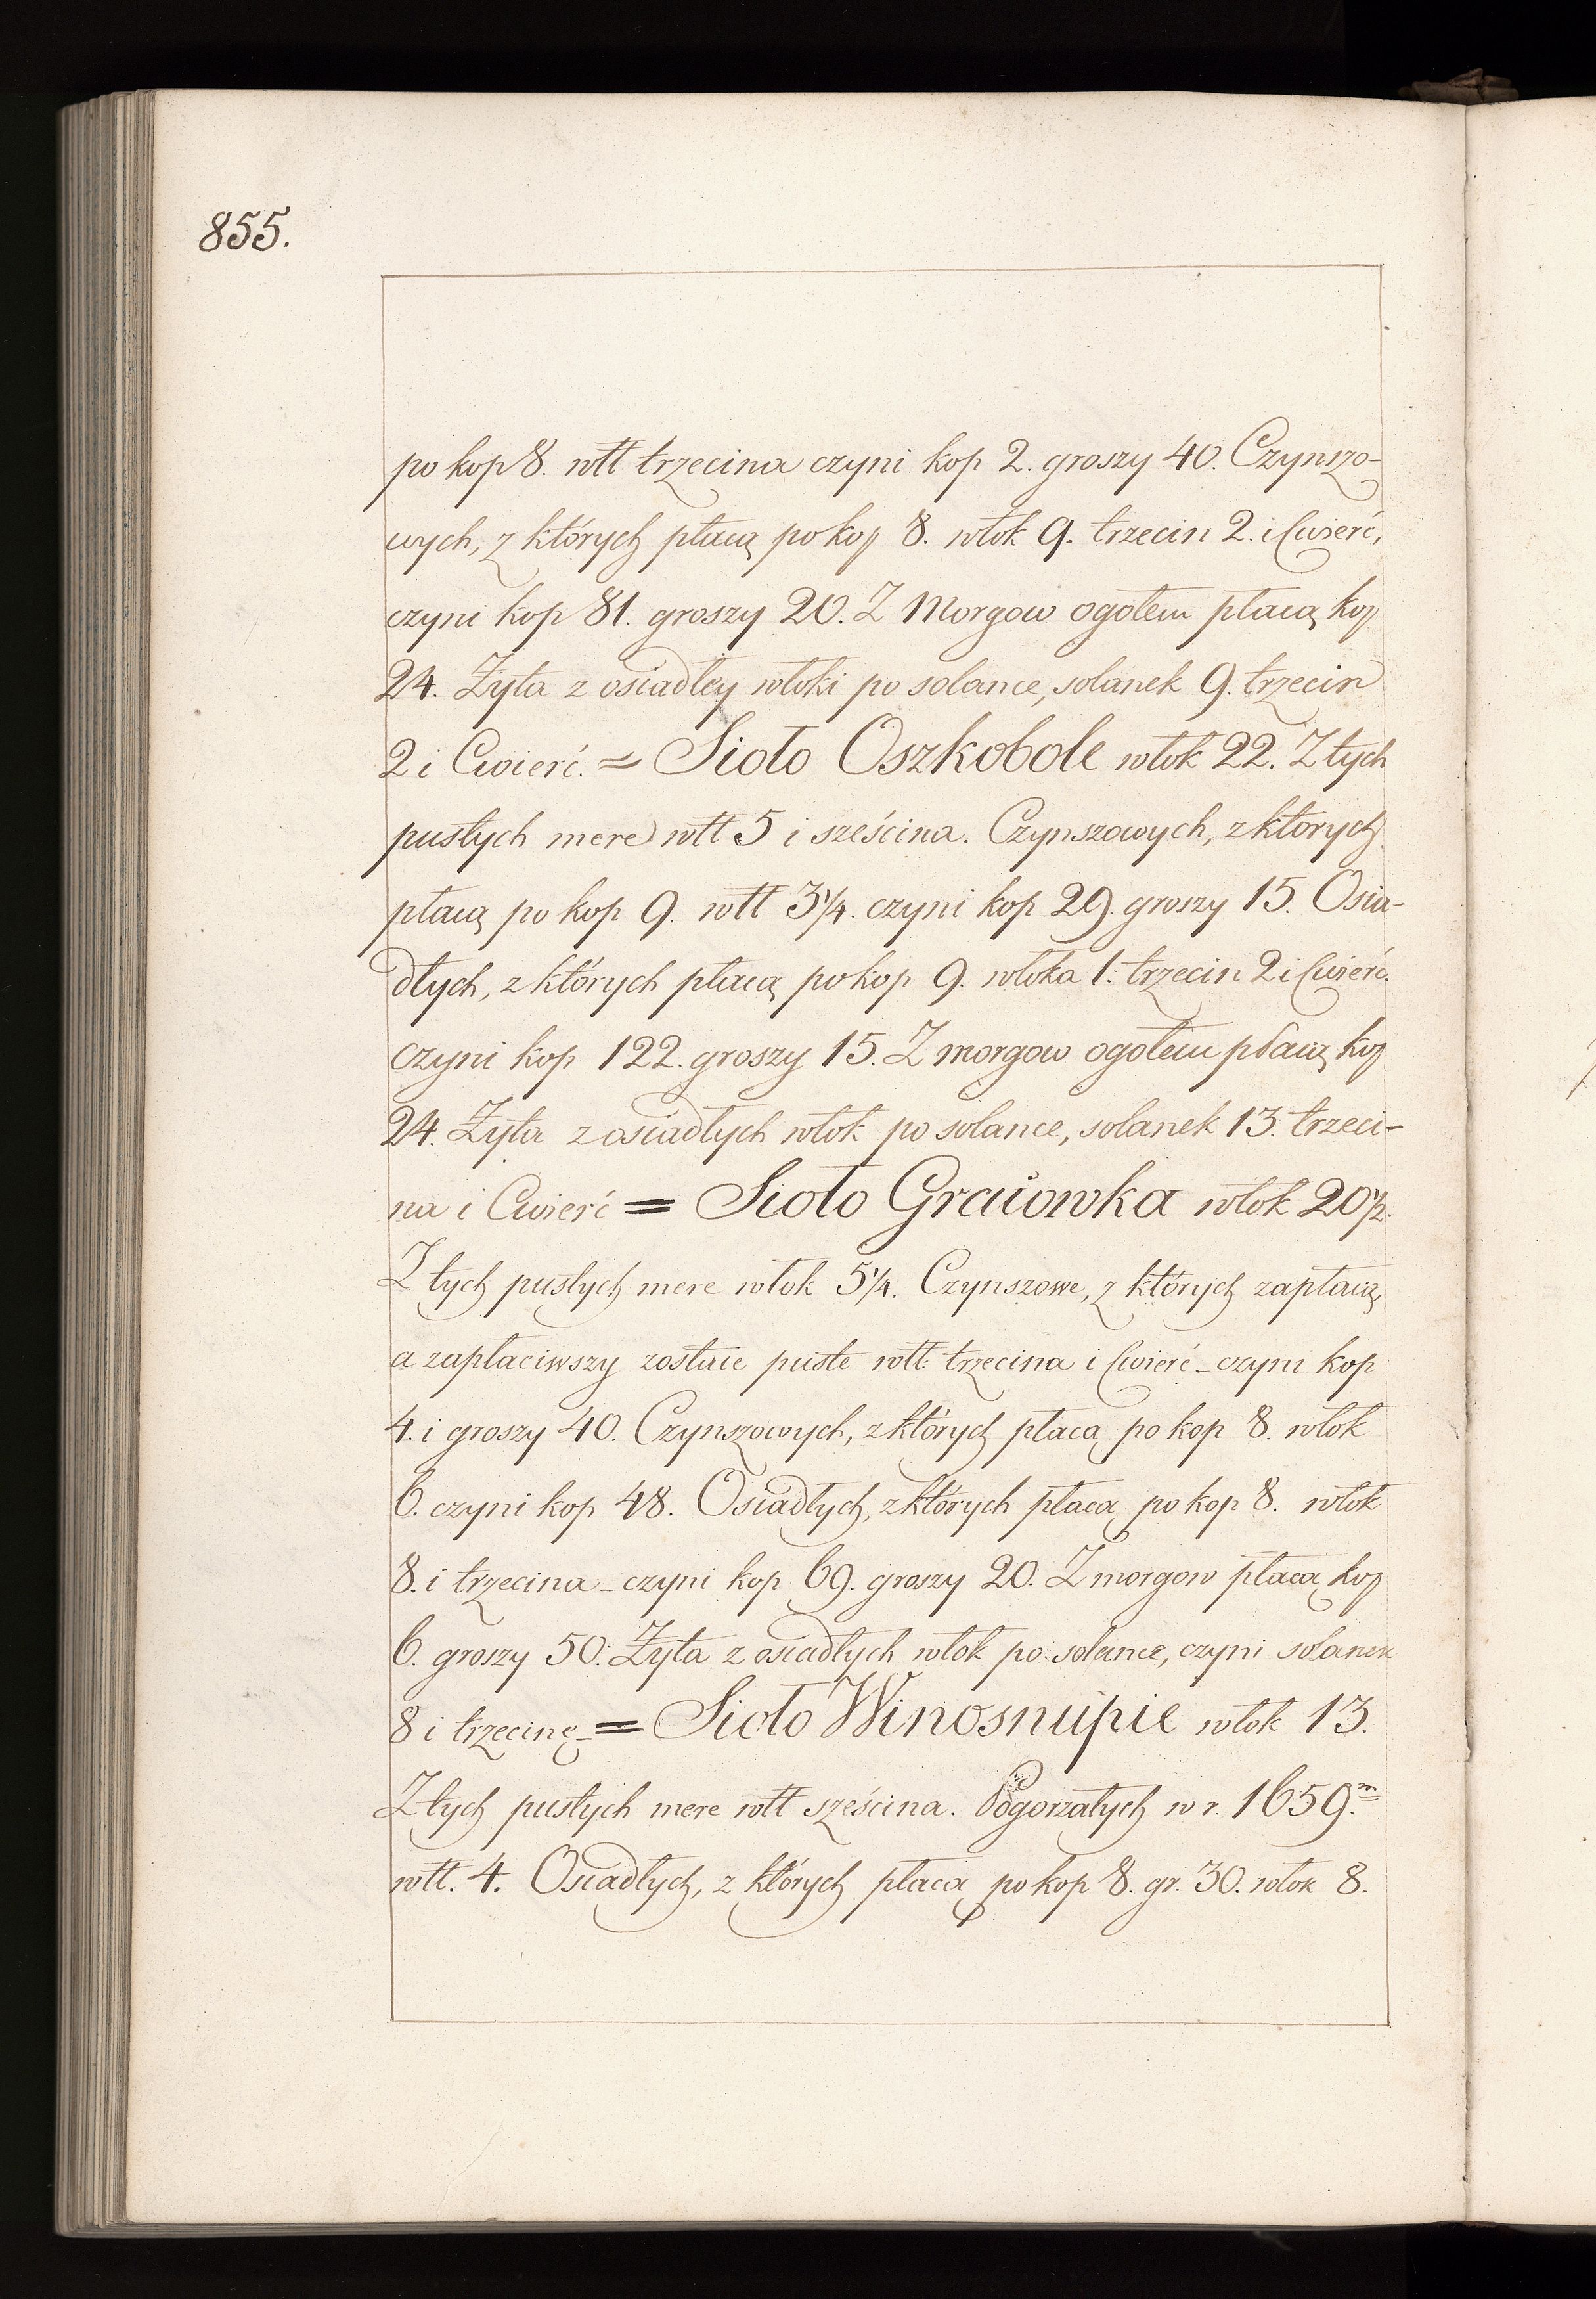 855.
po kop 8. włł trzecina czyni kop 2. groszy 40. Czynszo-
wych, z których płacą po kop 8. włok 9. trzecin 2. i Cwierć,
czyni kop 81. groszy 20. Z Morgow ogołem płacą kop
24. Żyta z osiadłey włoki po solance, solanek 9. trzecin
2 i Cwierć. = Sioło Oszkobole włok 22. Z tych
pustych mere włł 5 i sześcina. Czynszowych, z ktorych
płacą po kop 9. włł 3 1/4. czyni kop 29. groszy 15. Osia-
dłych, z których płacą po kop 9. włoka 1: trzecin 2 i Cwierć.
czyni kop 122. groszy 15. Z morgow ogołem płacą kop
24. Żyta z osiadłych włok po solance, solanek 13. trzeci-
na i Cwierć = Sioło Grauowka włok 20 1/2.
Z tych pustych mere włok 5 1/4. Czynszowe, z których zapłacą,
a zapłaciwszy zostaie puste włł: trzecina i Cwierć - czyni kop
4. i groszy 40. Czynszowych, z których płacą po kop 8. włok
6. czyni kop 48. Osiadłych, z których płacą po kop 8. włok
8. i trzecina - czyni kop 69. groszy 20. Z morgow płacą kop
6. groszy 50. Żyta z osiadłych włok po solance, czyni solanek
8 i trzecinę - = Sioło Winosnupie włok 13.
Z tych pustych mere włł sześcina. Pogorzałych w r. 1659.m
włł. 4. Osiadłych, z których płacą po kop 8. gr. 30. włok 8.